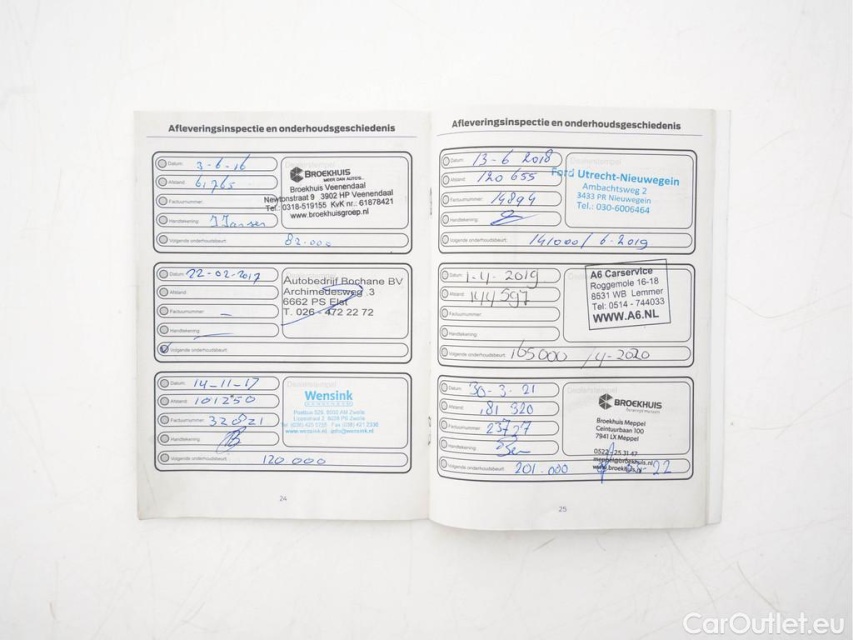 Afleveringsinspectie en onderhoudsgeschiedenis
Datum: 3-6-16
Afstand:
Factuurnummer:
Handtekening: J Jansen
Volgende onderhoudsbeurt: 82.000
BROEKHUIS
MEER DAN AUTO'S...
Broekhuis Veenendaal
Newtonstraat 9 3902 HP Veenendaal
Tel.: 0318-519155 KvK nr.: 61878421
www.broekhuisgroep.nl
Datum: 22-02-2017
Afstand:
Factuurnummer: -
Handtekening:
Volgende onderhoudsbeurt:
Autobedrijf Bochane BV
Archimedesweg 3
6662 PS Elst
T. 026 - 472 22 72
Datum: 14-11-17
Afstand: 101250
Factuurnummer: 32821
Handtekening:
Volgende onderhoudsbeurt: 120.000
Wensink
24
Afleveringsinspectie en onderhoudsgeschiedenis
Datum: 13-6 2018
Afstand: 120 655
Factuurnummer: 14894
Handtekening:
Volgende onderhoudsbeurt: 141000 / 6-2019
Ford Utrecht-Nieuwegein
Ambachtsweg 2
3433 PR Nieuwegein
Tel.: 030-6006464
Datum: 1-4-2019
Afstand: 144597
Factuurnummer:
Handtekening:
Volgende onderhoudsbeurt: 165000 /4-2020
A6 Carservice
Roggemole 16-18
8531 WB Lemmer
Tel: 0514 - 744033
WWW.A6.NL
Datum: 30-3-21
Afstand: 181 320
Factuurnummer: 23727
Handtekening:
Volgende onderhoudsbeurt: 201.000
BROEKHUIS
Broekhuis Meppel
Ceintuurbaan 100
7941 LX Meppel
0522-25 31 42
meppel@broekhuis.nl
www.broekhuis.nl
25
CarOutlet.eu